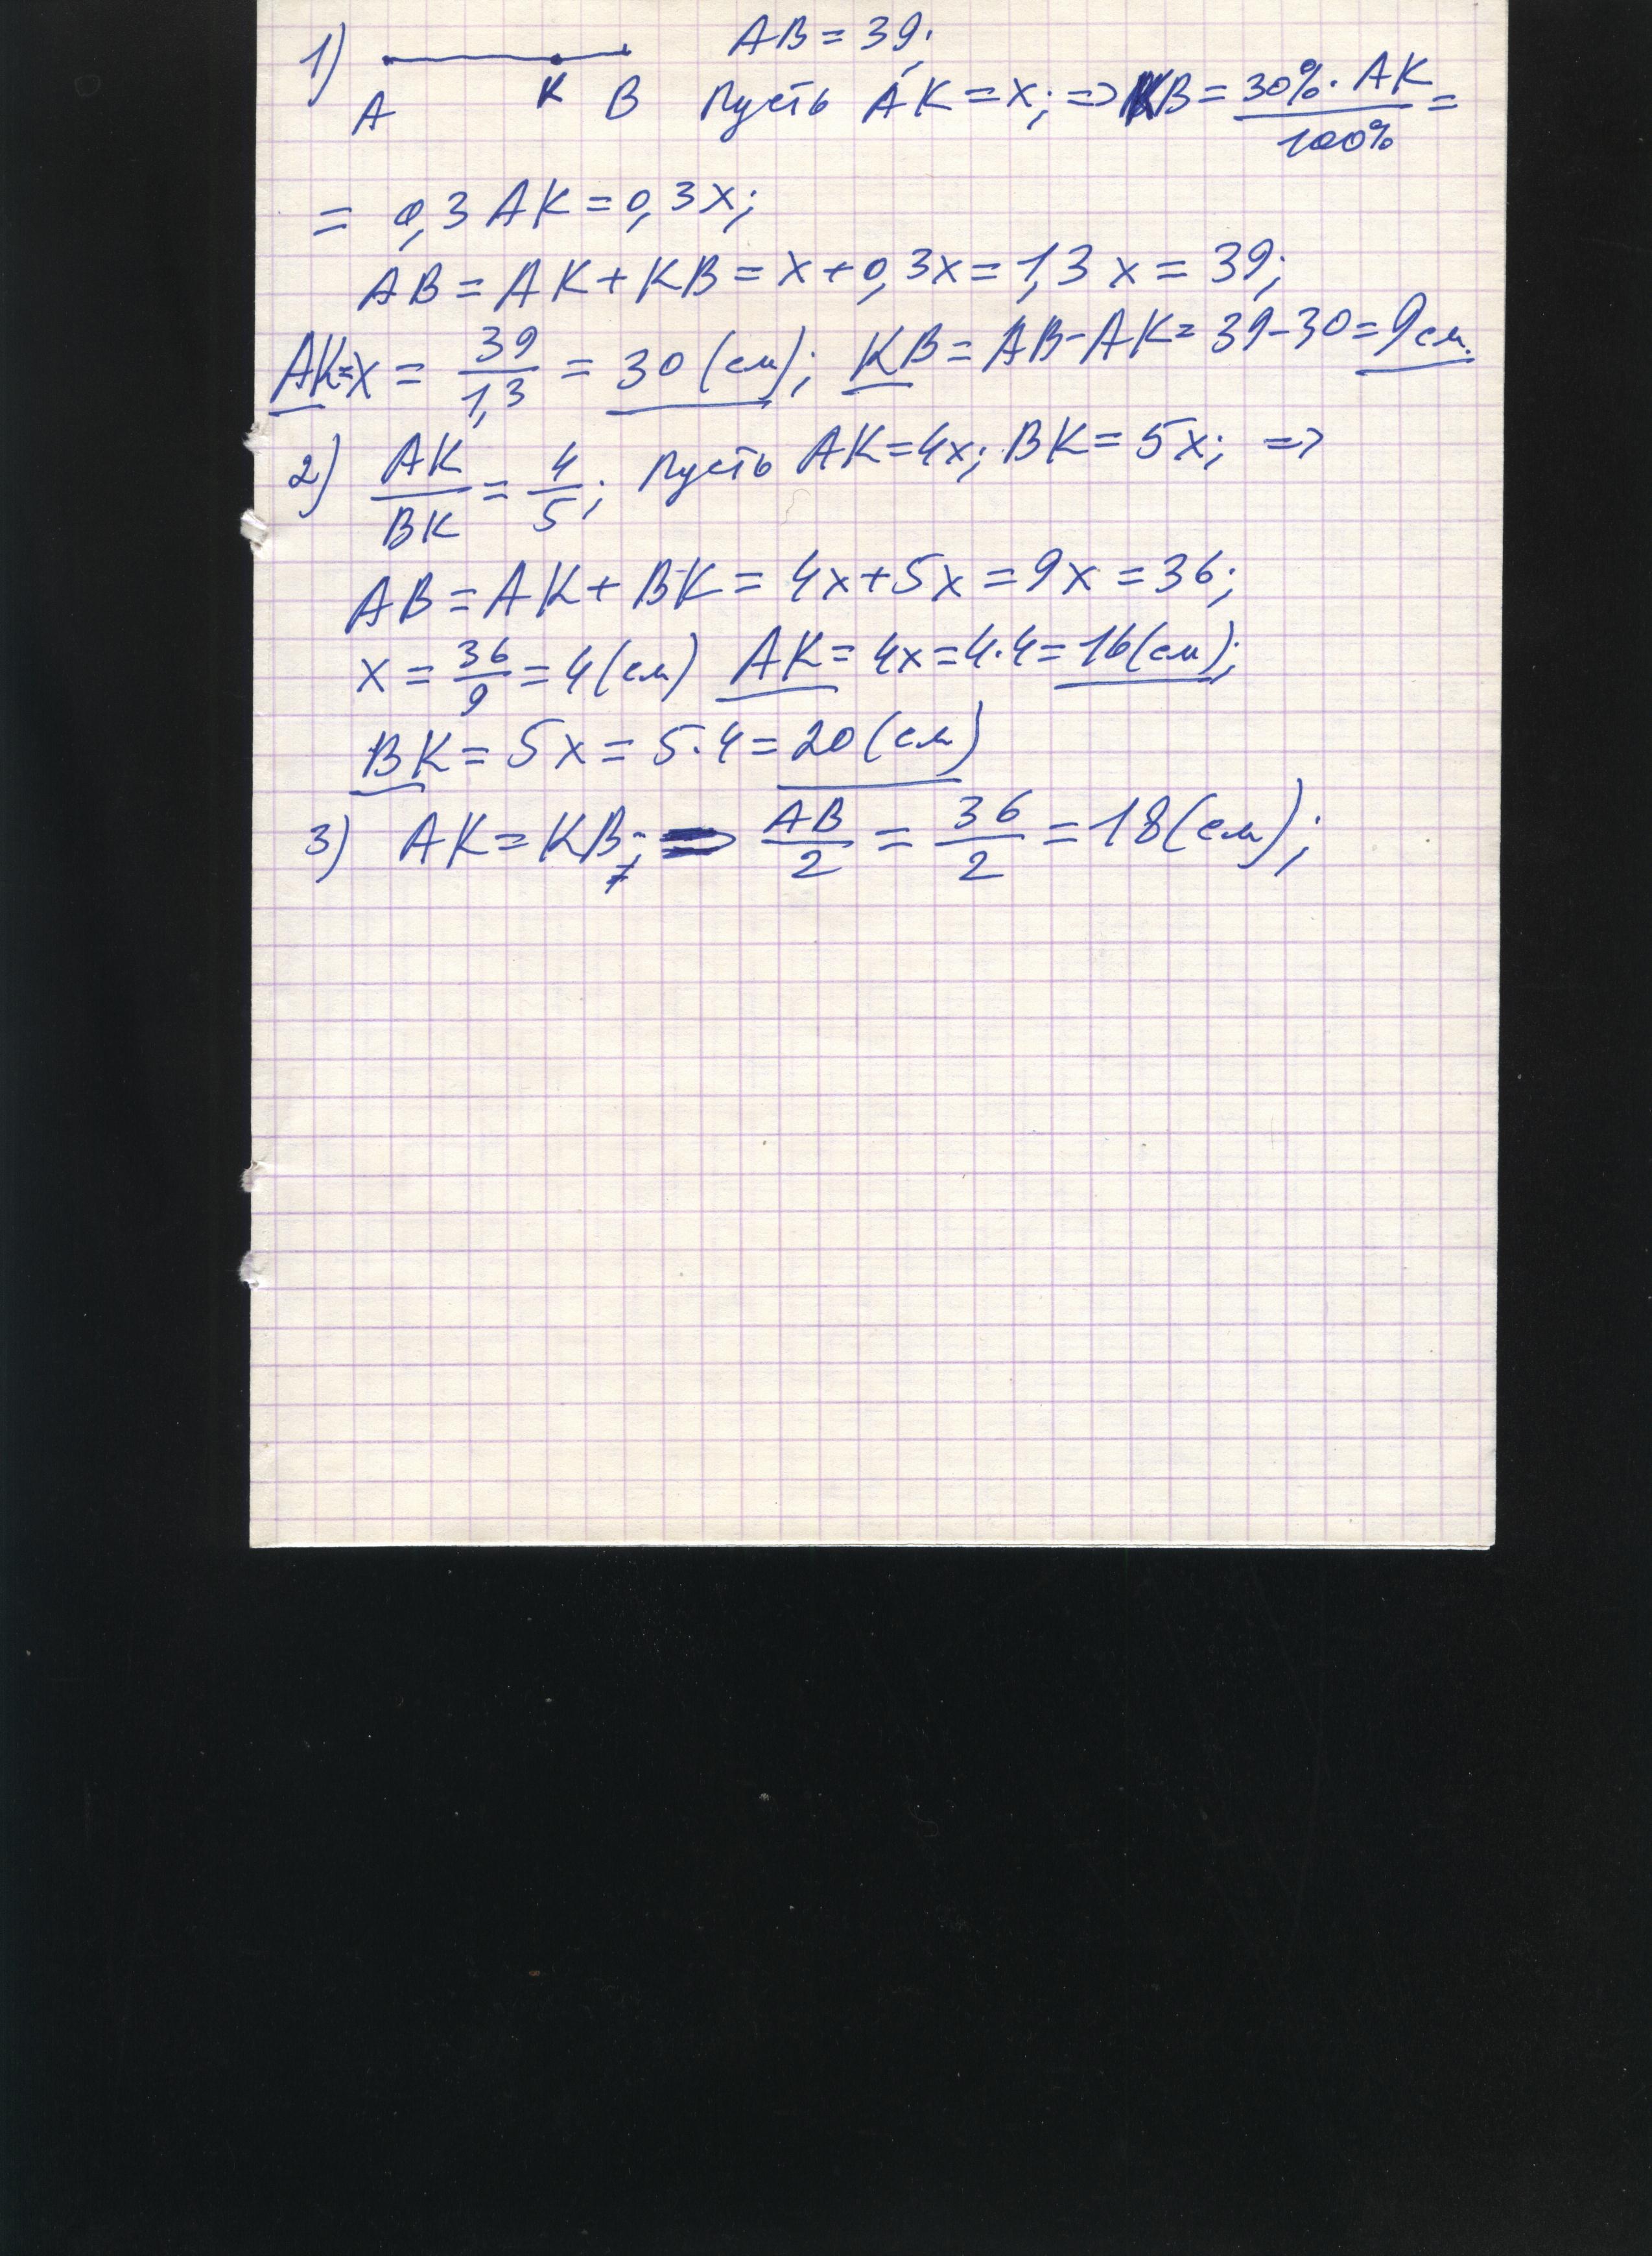 1) AB = 39;
A K B Пусть AK = x; => KB = 30% · AK / 100% =
= 0,3 AK = 0,3x;
AB = AK + KB = x + 0,3x = 1,3 x = 39;
AK = x = 39/1,3 = 30 (см); KB = AB - AK = 39 - 30 = 9 см.
2) AK/BK = 4/5; Пусть AK = 4x; BK = 5x; =>
AB = AK + BK = 4x + 5x = 9x = 36;
x = 36/9 = 4 (см) AK = 4x = 4·4 = 16 (см);
BK = 5x = 5·4 = 20 (см)
3) AK = KB = AB/2 = 36/2 = 18 (см);